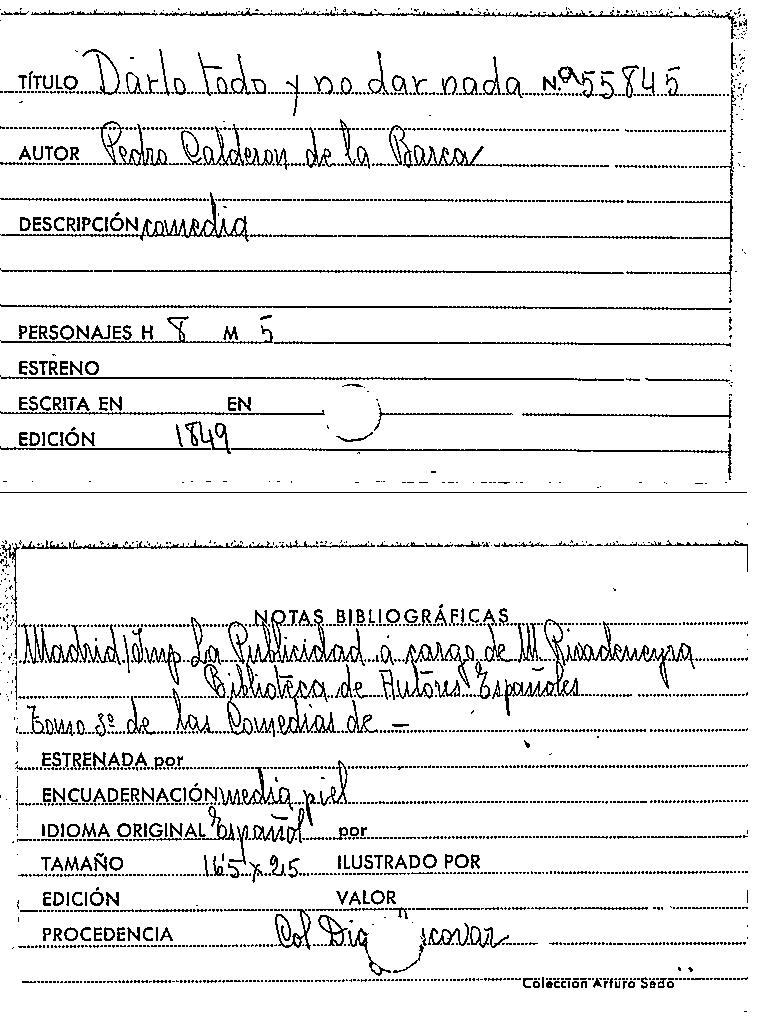 TÍTULO Darlo todo y no dar nada N.º 55845
AUTOR Pedro Calderon de la Barca
DESCRIPCIÓN comedia
PERSONAJES H 8 M 5
ESTRENO
ESCRITA EN EN
EDICIÓN 1849
NOTAS BIBLIOGRÁFICAS
Madrid/Imp La Publicidad á cargo de M Rivadeneyra
Biblioteca de Autores Españoles
Tomo 3º de las Comedias de -
ESTRENADA por
ENCUADERNACIÓN media piel
IDIOMA ORIGINAL Español por
TAMAÑO 16'5 x 25 ILUSTRADO POR
EDICIÓN VALOR
PROCEDENCIA Col
Colección Arturo Sedó